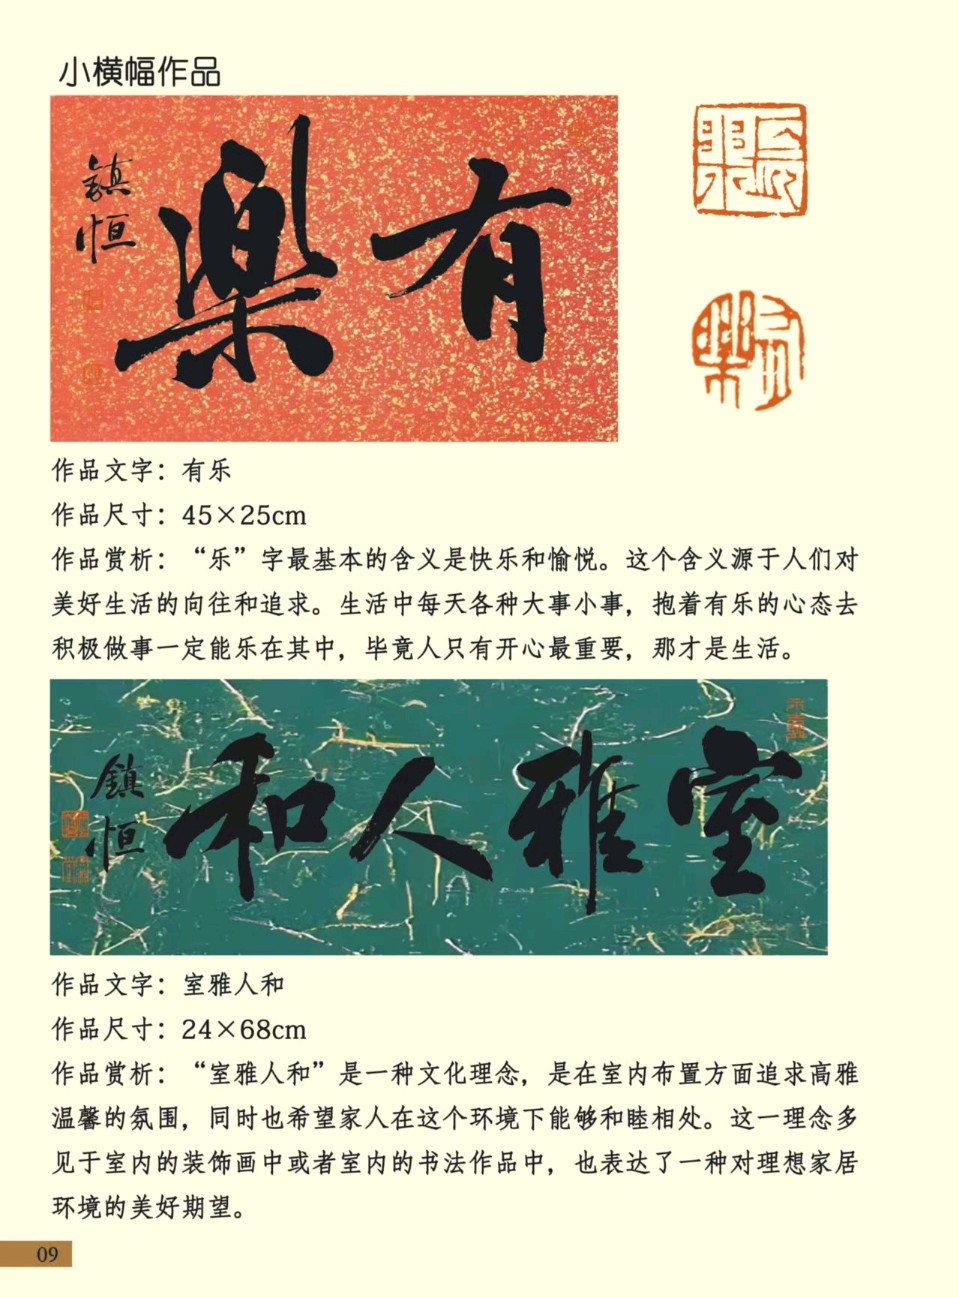 小横幅作品
有樂
鎮恒
作品文字：有乐
作品尺寸：45×25cm
作品赏析：“乐”字最基本的含义是快乐和愉悦。这个含义源于人们对
美好生活的向往和追求。生活中每天各种大事小事，抱着有乐的心态去
积极做事一定能乐在其中，毕竟人只有开心最重要，那才是生活。
室雅人和
鎮恒
作品文字：室雅人和
作品尺寸：24×68cm
作品赏析：“室雅人和”是一种文化理念，是在室内布置方面追求高雅
温馨的氛围，同时也希望家人在这个环境下能够和睦相处。这一理念多
见于室内的装饰画中或者室内的书法作品中，也表达了一种对理想家居
环境的美好期望。
09